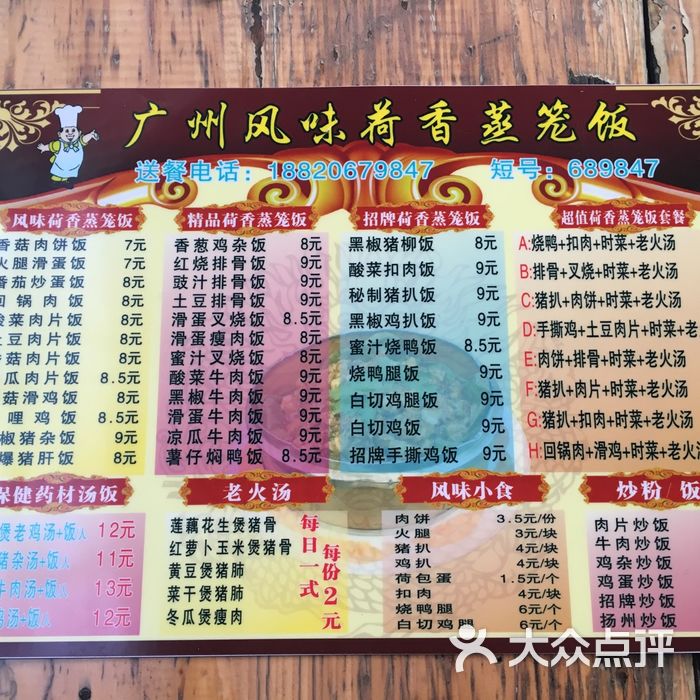 广州风味荷香蒸笼饭
送餐电话：18820679847 短号：689847
风味荷香蒸笼饭
香菇肉饼饭 7元
火腿滑蛋饭 7元
番茄炒蛋饭 8元
回锅肉饭 8元
酸菜肉片饭 8元
土豆肉片饭 8元
菇肉片饭 8元
瓜肉片饭 8.5元
菇滑鸡饭 8.5元
哩鸡饭 8.5元
椒猪杂饭 9元
爆猪肝饭 8元
精品荷香蒸笼饭
香葱鸡杂饭 8元
红烧排骨饭 9元
豉汁排骨饭 9元
土豆排骨饭 9元
滑蛋叉烧饭 8.5元
滑蛋瘦肉饭 8元
蜜汁叉烧饭 8元
酸菜牛肉饭 9元
黑椒牛肉饭 9元
滑蛋牛肉饭 9元
凉瓜牛肉饭 9元
薯仔焖鸭饭 8.5元
招牌荷香蒸笼饭
黑椒猪柳饭 8元
酸菜扣肉饭 9元
秘制猪扒饭 9元
黑椒鸡扒饭 9元
蜜汁烧鸭饭 8.5元
烧鸭腿饭 9元
白切鸡腿饭 9元
白切鸡饭 9元
招牌手撕鸡饭 9元
超值荷香蒸笼饭套餐
A:烧鸭+扣肉+时菜+老火汤
B:排骨+叉烧+时菜+老火汤
C:猪扒+肉饼+时菜+老火汤
D:手撕鸡+土豆肉片+时菜+老
E:肉饼+排骨+时菜+老火汤
F:猪扒+肉片+时菜+老火汤
G:猪扒+扣肉+时菜+老火汤
H:回锅肉+滑鸡+时菜+老火
保健药材汤饭
煲老鸡汤+饭/人 12元
猪杂汤+饭/人 11元
牛肉汤+饭/人 13元
鸡汤+饭/人 12元
老火汤
莲藕花生煲猪骨
红萝卜玉米煲猪骨
黄豆煲猪肺
菜干煲猪肺
冬瓜煲瘦肉
每日一式
每份2元
风味小食
肉饼 3.5元/份
火腿 3元/块
猪扒 4元/块
鸡扒 4元/块
荷包蛋 1.5元/个
扣肉 4元/块
烧鸭腿 6元/个
白切鸡腿 6元/个
炒粉/饭
肉片炒饭
牛肉炒饭
鸡杂炒饭
鸡蛋炒饭
招牌炒饭
扬州炒饭
大众点评